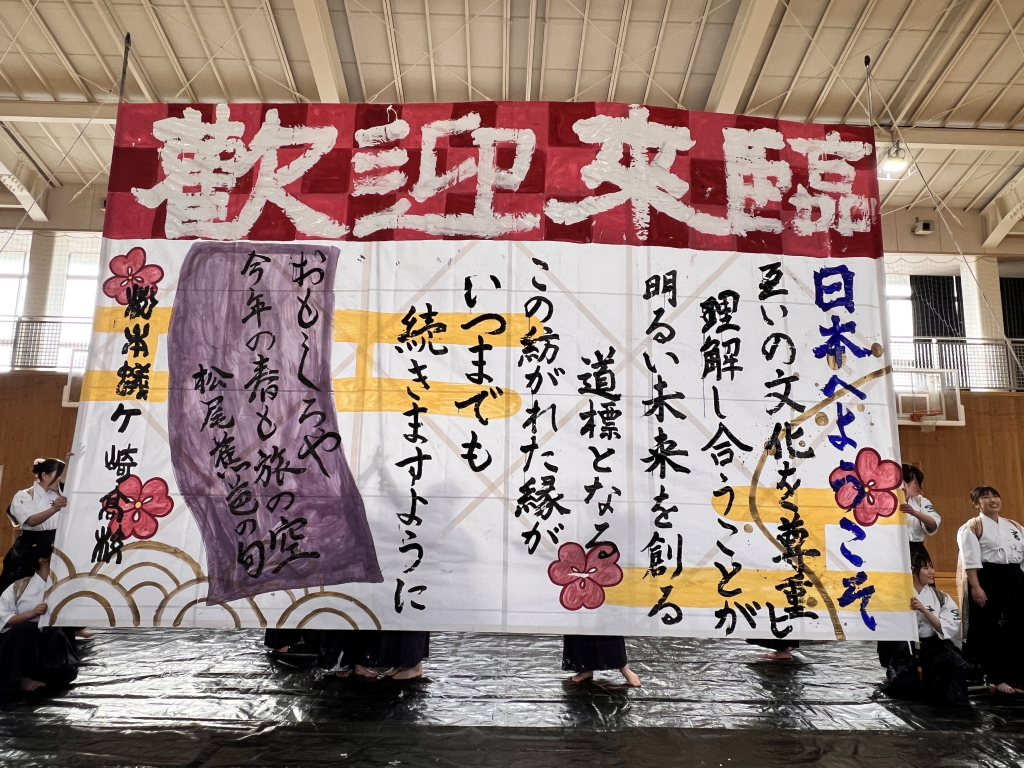 歓迎来臨
日本へようこそ
互いの文化を尊重し
理解し合うことが
明るい未来を創る
道標となる
この紡がれた縁が
いつまでも
続きますように
おもしろや
今年の春も旅の空
松尾芭蕉の句
ケ崎高校